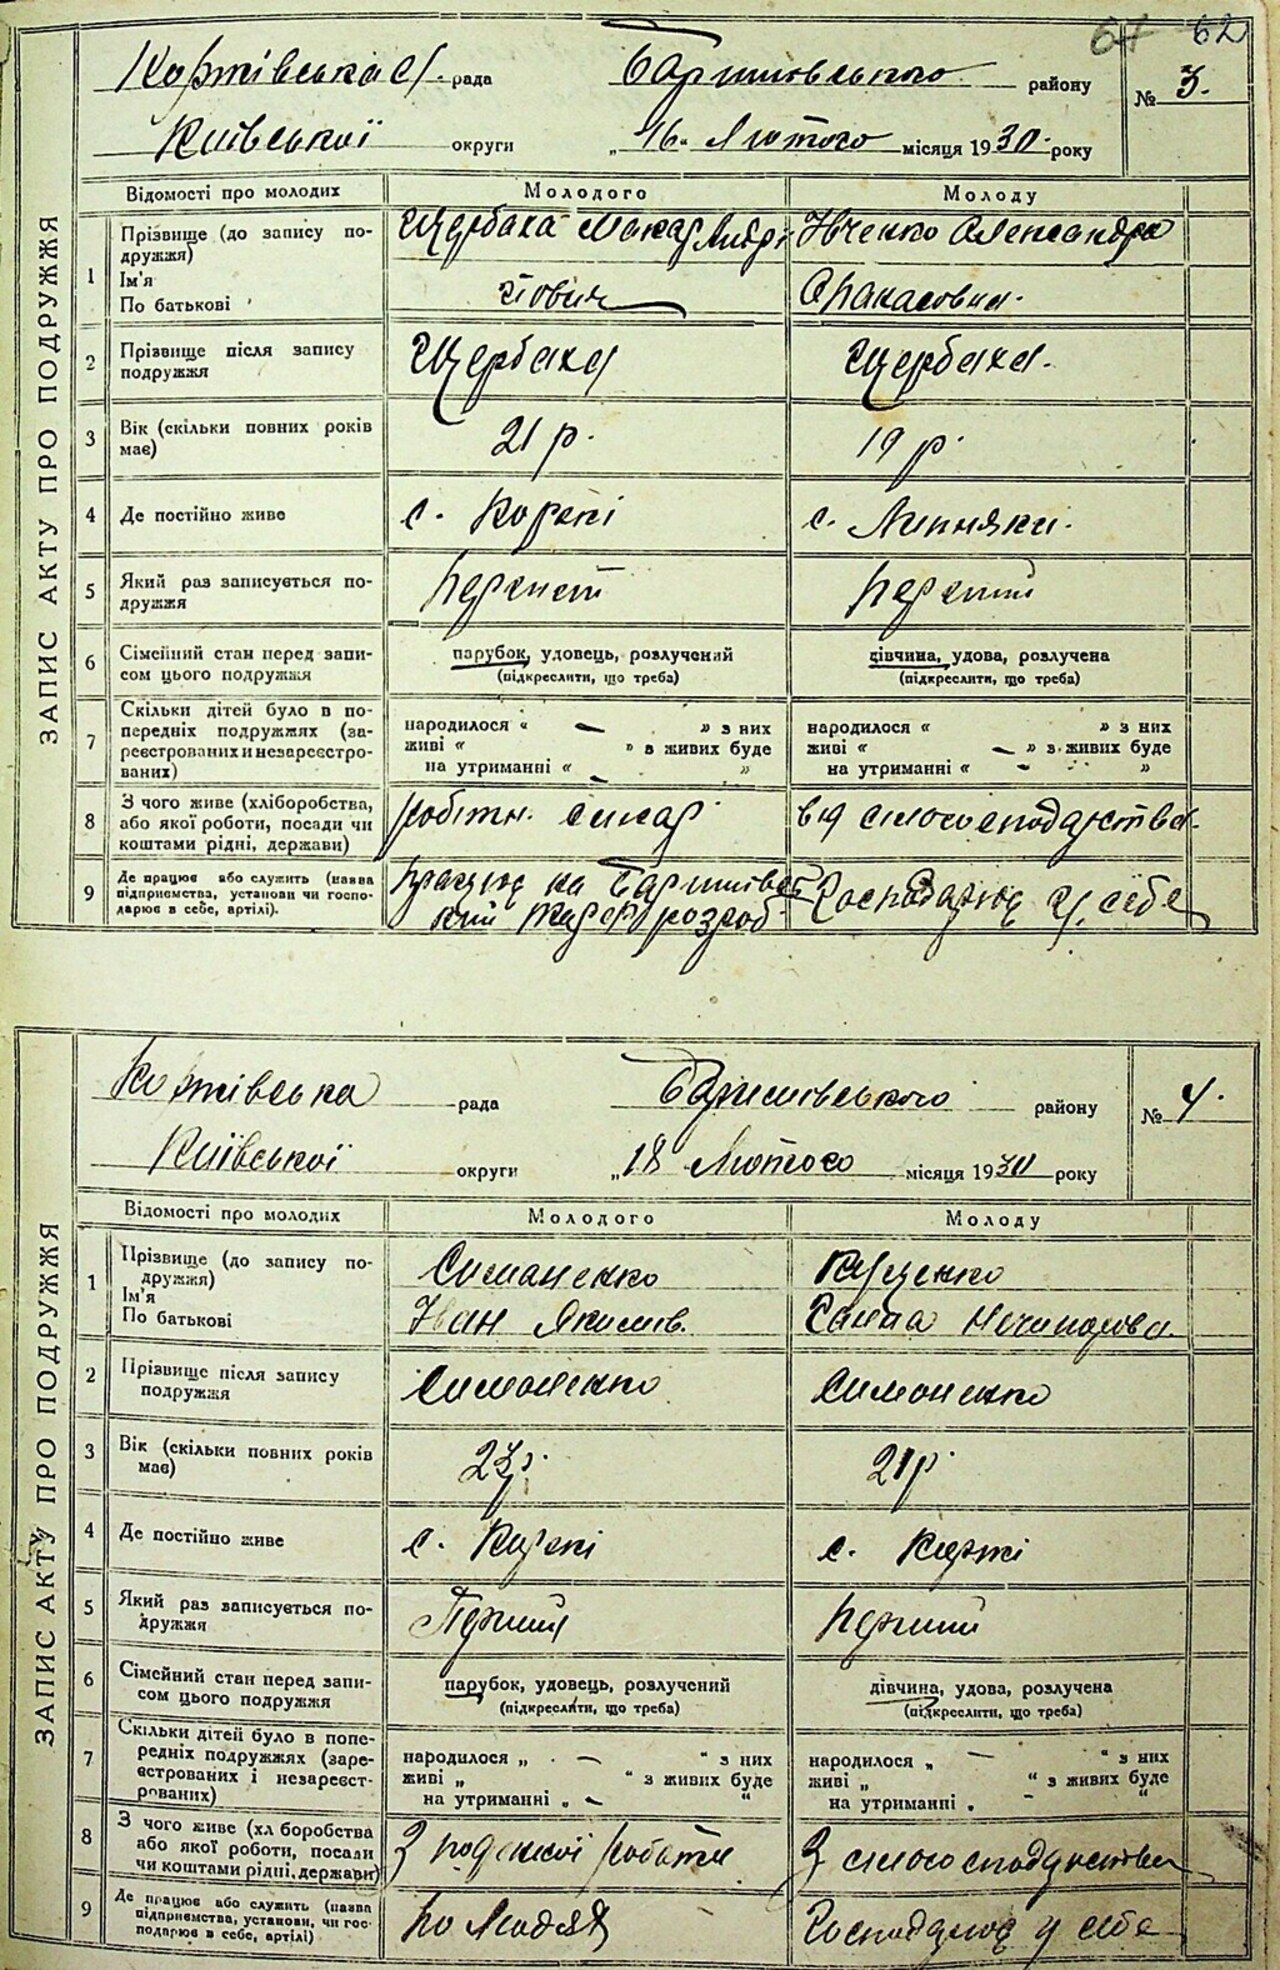 61 62
ЗАПИС АКТУ ПРО ПОДРУЖЖЯ
Коржівська с/. рада Баришівського району № 3.
Київської округи „16„ Лютого місяця 1930 року
Відомості про молодих Молодого Молоду
1 Прізвище (до запису подружжя) Ім'я По батькові
Щербака Макар Андрі Івченко Олександра
йович Опанасовна.
2 Прізвище після запису подружжя Щербака Щербака.
3 Вік (скільки повних років має) 21 р. 19 р.
4 Де постійно живе с. Коржі с. Липняки.
5 Який раз записується подружжя Перший Перший
6 Сімейний стан перед записом цього подружжя парубок, удовець, розлучений дівчина, удова, розлучена
(підкреслити, що треба) (підкреслити, що треба)
7 Скільки дітей було в попередніх подружжях (зареєстрованих и незареєстрованих)
народилося « — » з них народилося « » з них
живі « » з живих буде живі « — » з живих буде
на утриманні « — » на утриманні « - »
8 З чого живе (хліборобства, або якої роботи, посади чи коштами рідні, держави) робітн. від сільгосподарства.
9 Де працює або служить (назва підприємства, установи чи господарює в себе, артілі).
Працює на Баришівсь Господарює у себе
кий розроб

ЗАПИС АКТУ ПРО ПОДРУЖЖЯ
Коржівська рада Баришівського району № 4.
Київської округи „18 Лютого місяця 1930 року
Відомості про молодих Молодого Молоду
1 Прізвище (до запису подружжя) Ім'я По батькові
Симоненко Куценко
Іван Якимів. Ганна Нечипоровн.
2 Прізвище після запису подружжя Симоненко Симоненко
3 Вік (скільки повних років має) 23р. 21р
4 Де постійно живе с. Коржі с. Коржі
5 Який раз записується подружжя Перший Перший
6 Сімейний стан перед записом цього подружжя парубок, удовець, розлучений дівчина, удова, розлучена
(підкреслити, що треба) (підкреслити, що треба)
7 Скільки дітей було в попередніх подружжях (зареєстрованих і незареєстрованих)
народилося „ — “ з них народилося „ — “ з них
живі „ “ з живих буде живі „ “ з живих буде
на утриманні „ — “ на утриманні „ - “
8 З чого живе (хл боробства або якої роботи, посади чи коштами рідні, держави) З поденної роботи З сільгосподарства
9 Де працює або служить (назва підприємства, установи, чи господарює в себе, артілі) По людях Господарює у себе